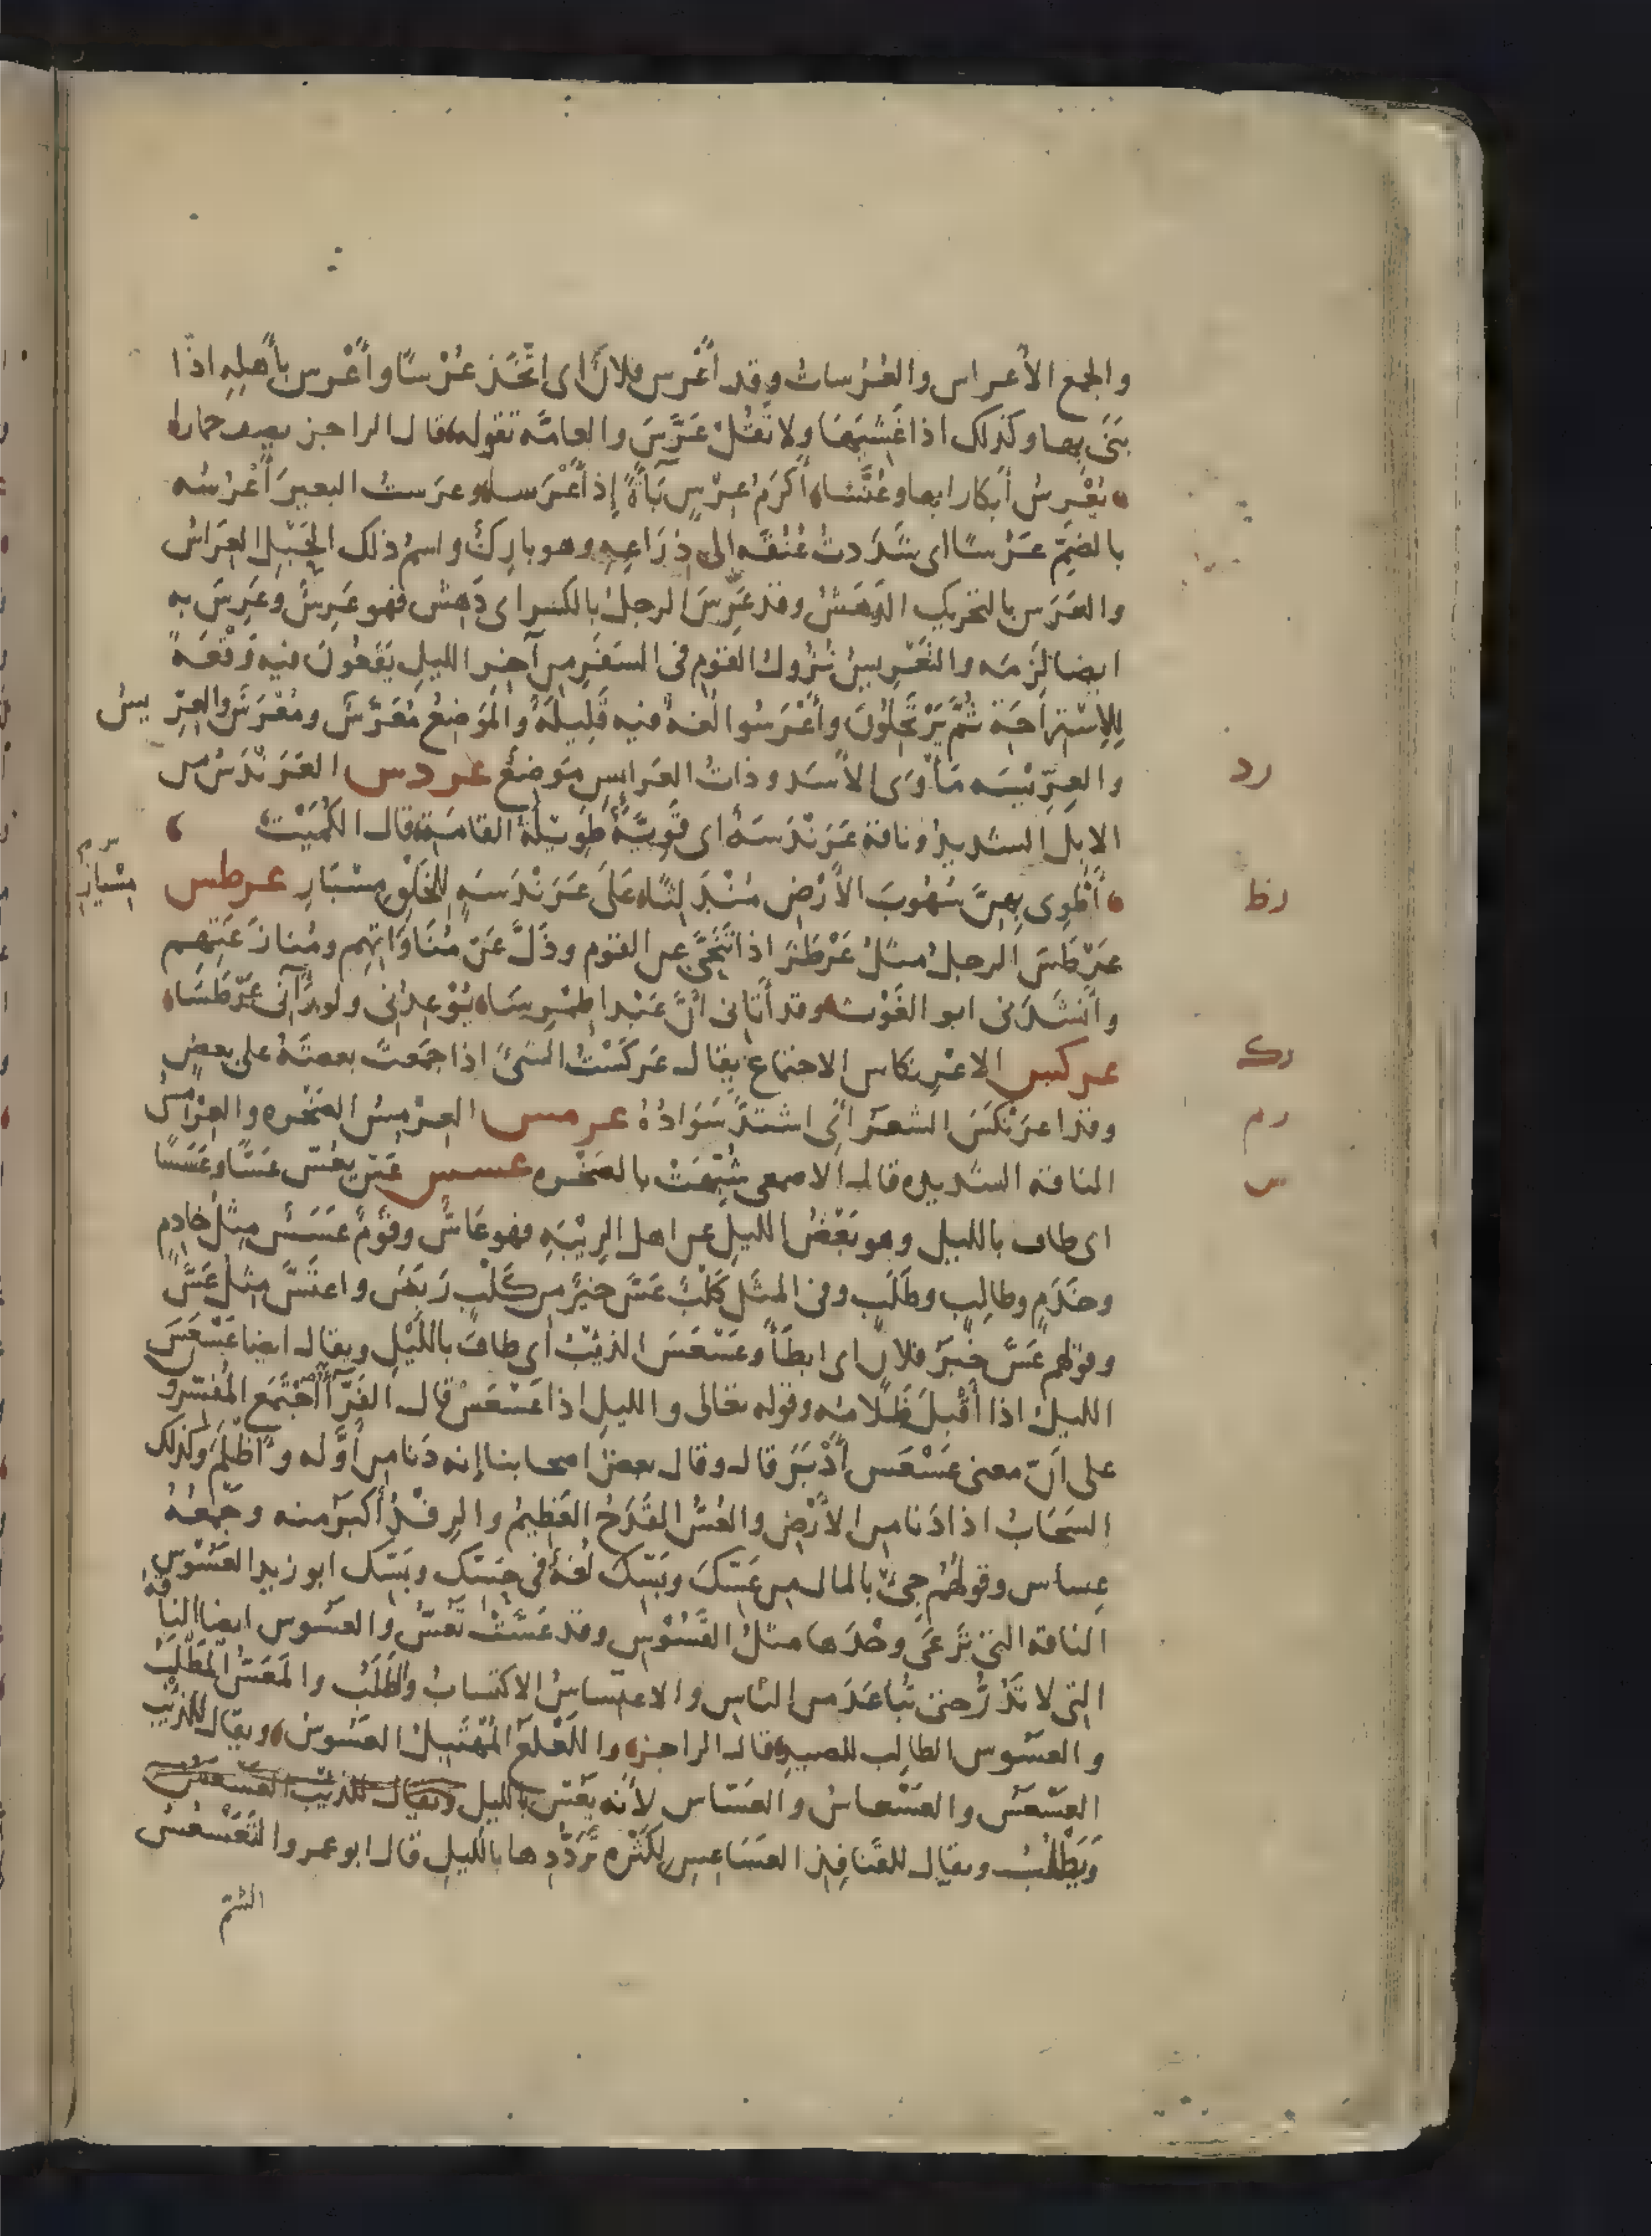 والجمع الأعراس والعُرُسات وقد أَعْرس فلانٌ اى اتَّخَذ عُرْسًا وأَعْرس بأَهلِهِ اذا
بَنَى بها وكذلك اذا غَشِيَهَا ولا تَقُلْ عَرَّسَ والعامّه تقوله قال الراجز يصف حمارا
يُعْرِسُ أبكارا بها وعُنَّسَا أَكرَمُ عِرْسٍ بَآءَةً إِذ أَعْرَسا وعرَستُ البعيرَ أَعْرُسُه
بالضمّ عَرْسًا اى شَدَدتُ عُنُقَه الى ذِرَاعِهِ وهو بارِكٌ واسمُ ذلك الحَبْلِ العِرَاسُ
والعَرَس بالتحريك الدَهَشُ وقد عَرِسَ الرجلُ بالكسر اى دَهِشَ فهو عَرِسٌ وعَرِسَ به
ايضا لَزِمَه والتَعْرِيسُ نُزُولُ القوم فى السَفَرِ من آخِرِ الليلِ يَقَعُونَ فيه وَقْعَةً
لِلِاسْتِراحَة ثُمَّ يَرْتَحِلُونَ وأَعْرَسُوا لُغةٌ فيه قَلِيلَةٌ والمَوضِعُ مُعَرَّسٌ ومُعْرَسٌ والعِرّيسُ
رد والعِرِّيْسَه مَأْوَى الأسَد وذاتُ العَرايسِ مَوضِعٌ عردس العَرَنْدَسُ من
الابِلَ الشديدُ وناقة عَرَنْدَسَةٌ اى قَوِيَّةٌ طَوِيلَةُ القامَةِ قال الكُمَيْتُ
رط أَطْوِى بِهِنَّ سُهُوبَ الأرْضِ مُنْدَلِثًا عَلَى عَرَنْدَسَةٍ لِلخَلْقِ مِسْبَارِ عرطس
عَرْطَسَ الرجلُ مثلُ عَرْطَزَ اذا تَنَحَّى عن القوم وذَلَّ عَنْ مُنَاوَاتِهِم ومُنازَعَتِهم
وأَنشَدَنى ابو الغَوْث وقد أَتَانى أنَّ عَبْدا طِمْرِسَا يُوْعِدُنى ولو رَآنى عَرْطَسَا
رك عركس الاعْرِنكاس الاجتماع يقال عَركَسْتُ الشىءَ اذا جمَعتَ بعضَهُ على بعضٍ
رم وقد اعرَنْكَسَ الشعَرُ اى اشتدَّ سَوَادُهُ عرمس العِرْمِسُ الصَخْره والعِرْمِسُ
س الناقه الشديده قال الاصمعى شُبِّهَتْ بالصَخْره عسس عَسَّ يعُسُّ عَسًّا وعَسَسًا
اى طاف بالليل وهو نَفْضُ الليلِ عن اهل الرِيْبَهِ فهو عَاسٌّ وقَومٌ عَسَسٌ مِثلُ خادِمٍ
وخَدَمٍ وطالِبٍ وطَلَبٍ وفى المثَل كَلْبٌ عَسَّ خيرٌ من كَلْبٍ رَبَضَ واعتَسَّ مِثلُ عَسَّ
وقولهم عَسَّ خَبَرُ فلانٍ اى ابطَأَ وعَسْعَسَ الذئبُ أى طافَ باللَيْلِ ويقال ايضا عَسْعَسَ
الليلُ اذا أَقْبَلَ ظَلامُه وقوله تعالى والليلِ اذا عَسْعَسْ قال الفَرّآء أَجْتَمَع المُفَسّرو
على أنّ معنى عَسْعَس أَدْبَرَ قال وقال بعضُ اصحابنا إنه دَنا من أَوَّله وأَظلَمَ وكذلك
السَحَابُ اذا دَنا من الأرْضِ والعُسُّ القَدَحُ العَظِيمُ والرِفْدُ أكبَرُ منه وجَمْعُهُ
عِساس وقولُهُم جِئْ بالمال من عَسِّكَ وبَسِّكَ لُغةٌ فى حَسِّك وبَسِّك ابو زيد العَسُوْس
الناقه التى تَرْعَى وحْدَها مثلُ القَسُوْسِ وقد عَسَّتْ تَعُسُّ والعَسُوس ايضا الناقَةُ
التى لا تَدُرُّ حتى تُباعَدَ من النّاسِ والاعتِساسُ الاكتسابُ والطَلَبُ والمَعَسُّ المَطْلَبُ
والعسُوس الطالِب للصيد قال الراجز واللَعْلَعُ المُهْتَبِلُ العَسُوسُ ويقال للذئب
العَسْعَسُ والعَسْعاسُ والعَسّاس لأنّه يَعُسّ بالليل ويقال للذئب العسعس
ويَطْلُبُ ويقال للقَنافِذِ العَسَاعِسِ لِكَثْرَه تَرَدُّدِها بالليلِ قال ابو عمرو التَعَسْعُسُ
الشمّ